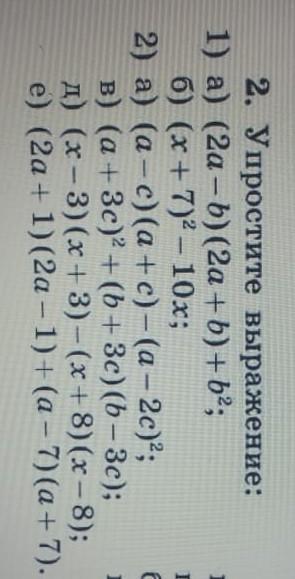 2. Упростите выражение:
1) а) (2a – b)(2a + b) + b²;
б) (x + 7)² – 10x;
2) а) (a – c)(a + c) – (a – 2c)²;
в) (a + 3c)² + (b + 3c)(b – 3c);
д) (x – 3)(x + 3) – (x + 8)(x – 8);
е) (2a + 1)(2a – 1) + (a – 7)(a + 7).